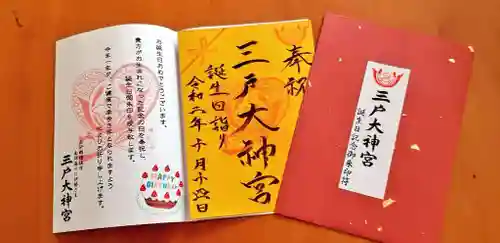 お誕生日おめでとうございます。
貴方がお生まれになった記念の日を奉祝し
誕生日御朱印を授与致します。
今年一年が、ご健康で幸多き年となられますよう
心よりお祈り申し上げます。
三戸大神宮
HAPPY
BIRTHDAY
奉祝
三戸大神宮
誕生日詣り
令和二年十月十
日
三戸大神宮
誕生日記念御朱印符